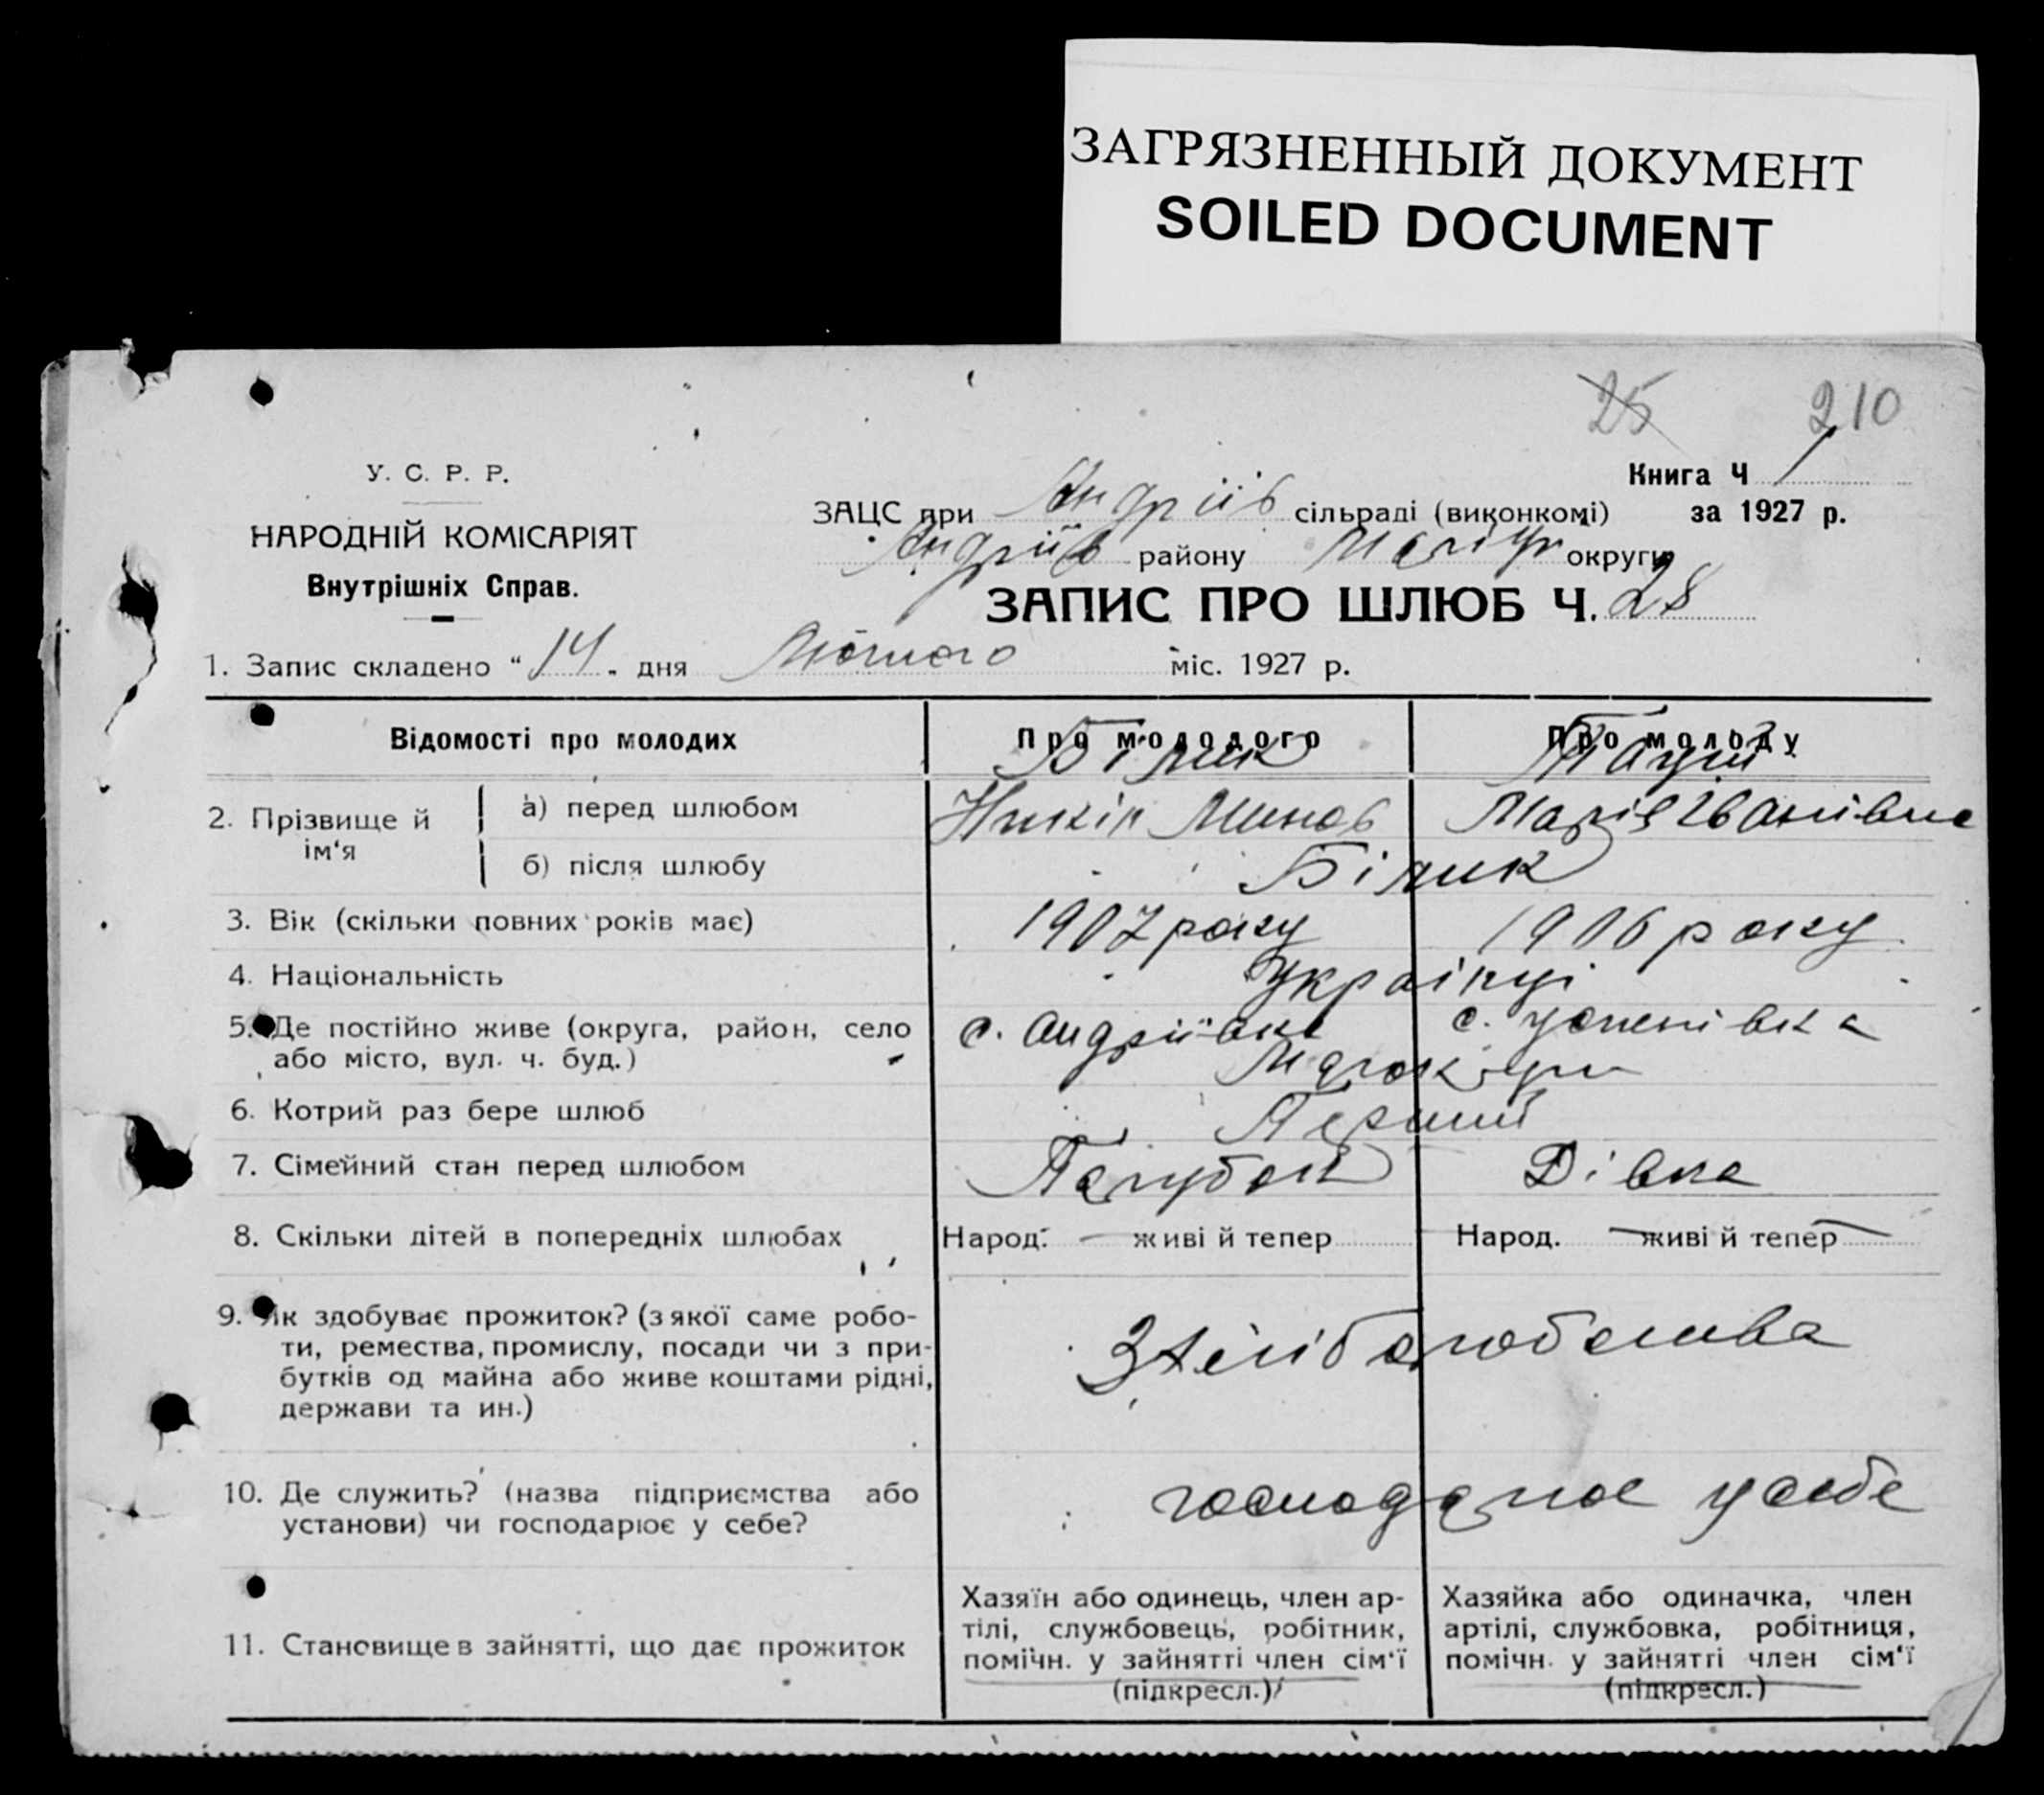 ЗАГРЯЗНЕННЫЙ ДОКУМЕНТ
SOILED DOCUMENT
25 210
У. С. Р. Р.
НАРОДНІЙ КОМІСАРІЯТ
Внутрішніх Справ.
Книга Ч 1
ЗАЦС при Андріїв сільраді (виконкомі) за 1927 р.
Андріїв району округи
ЗАПИС ПРО ШЛЮБ Ч. 28
1. Запис складено "14" дня Лютого міс. 1927 р.
Відомості про молодих Про молодого Про молоду
Білик
2. Прізвище й ім'я а) перед шлюбом Марія Іванівна
б) після шлюбу Білик
3. Вік (скільки повних років має) 1907 року 1906 року
4. Національність Українці
5. Де постійно живе (округа, район, село або місто, вул. ч. буд.) с. Андріївка с. Успенівка
6. Котрий раз бере шлюб Перший
7. Сімейний стан перед шлюбом Парубок Дівка
8. Скільки дітей в попередніх шлюбах Народ. — живі й тепер Народ. — живі й тепер —
9. Як здобуває прожиток? (з якої саме робо-
ти, ремества, промислу, посади чи з при-
бутків од майна або живе коштами рідні,
держави та ин.)
З хліборобства
10. Де служить? (назва підприємства або
установи) чи господарює у себе?
господарює у себе
11. Становище в зайнятті, що дає прожиток
Хазяїн або одинець, член ар-
тілі, службовець, робітник,
помічн. у зайнятті член сім'ї
(підкресл.)
Хазяйка або одиначка, член
артілі, службовка, робітниця,
помічн. у зайнятті член сім'ї
(підкресл.)